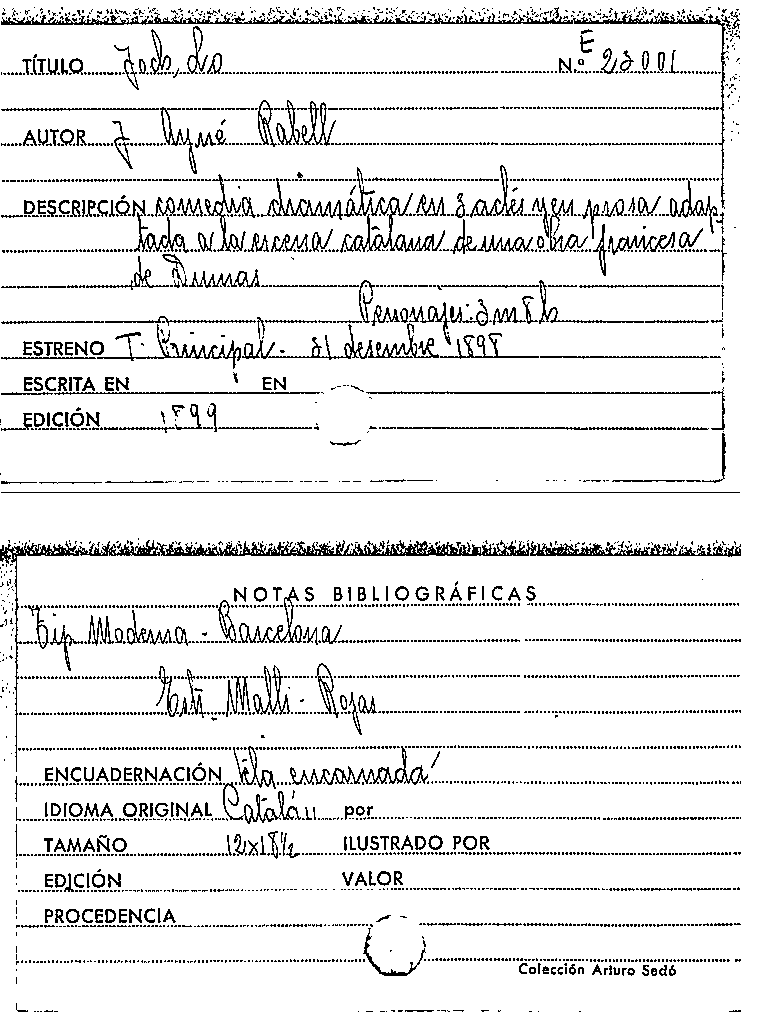 TÍTULO Jock, Lo N.º E 23001
AUTOR J Aymé Rabell
DESCRIPCIÓN comedia dramática en 3 actes y en prosa adap
tada a la escena catalana de una obra francesa
de Dumas
Personajes: 3 m 8 h
ESTRENO T. Principal - 31 desembre 1898
ESCRITA EN EN
EDICIÓN 1899
NOTAS BIBLIOGRÁFICAS
Tip Moderna - Barcelona
Estr. - Rojas
ENCUADERNACIÓN tela encarnada
IDIOMA ORIGINAL Catalán por
TAMAÑO 12x18½ ILUSTRADO POR
EDICIÓN VALOR
PROCEDENCIA
Colección Arturo Sedó